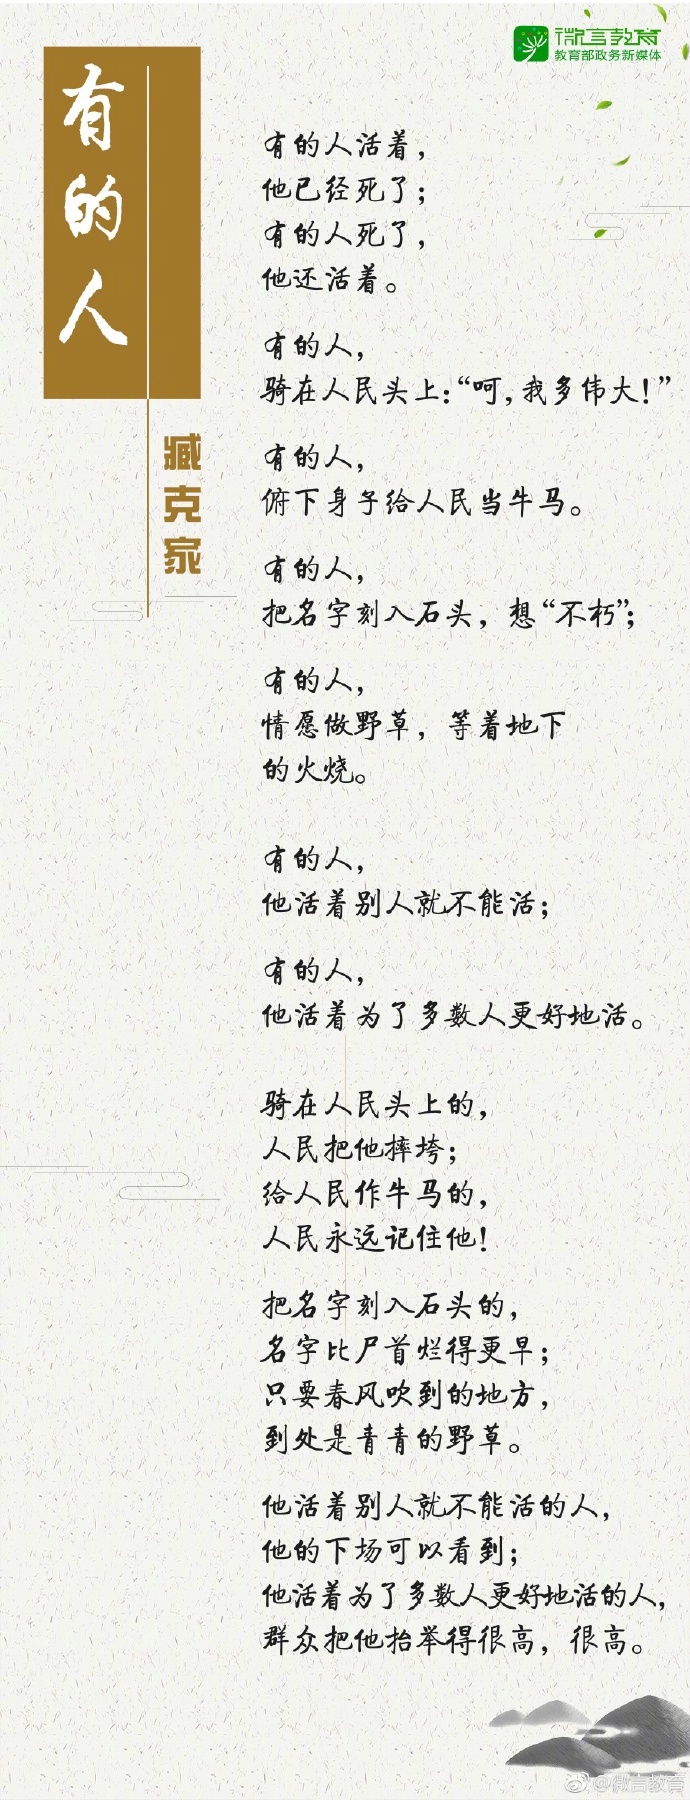 微言教育
教育部政务新媒体
有的人
臧克家
有的人活着，
他已经死了；
有的人死了，
他还活着。
有的人，
骑在人民头上：“呵，我多伟大！”
有的人，
俯下身子给人民当牛马。
有的人，
把名字刻入石头，想“不朽”；
有的人，
情愿做野草，等着地下
的火烧。
有的人，
他活着别人就不能活；
有的人，
他活着为了多数人更好地活。
骑在人民头上的，
人民把他摔垮；
给人民作牛马的，
人民永远记住他！
把名字刻入石头的，
名字比尸首烂得更早；
只要春风吹到的地方，
到处是青青的野草。
他活着别人就不能活的人，
他的下场可以看到；
他活着为了多数人更好地活的人，
群众把他抬举得很高，很高。
@微言教育